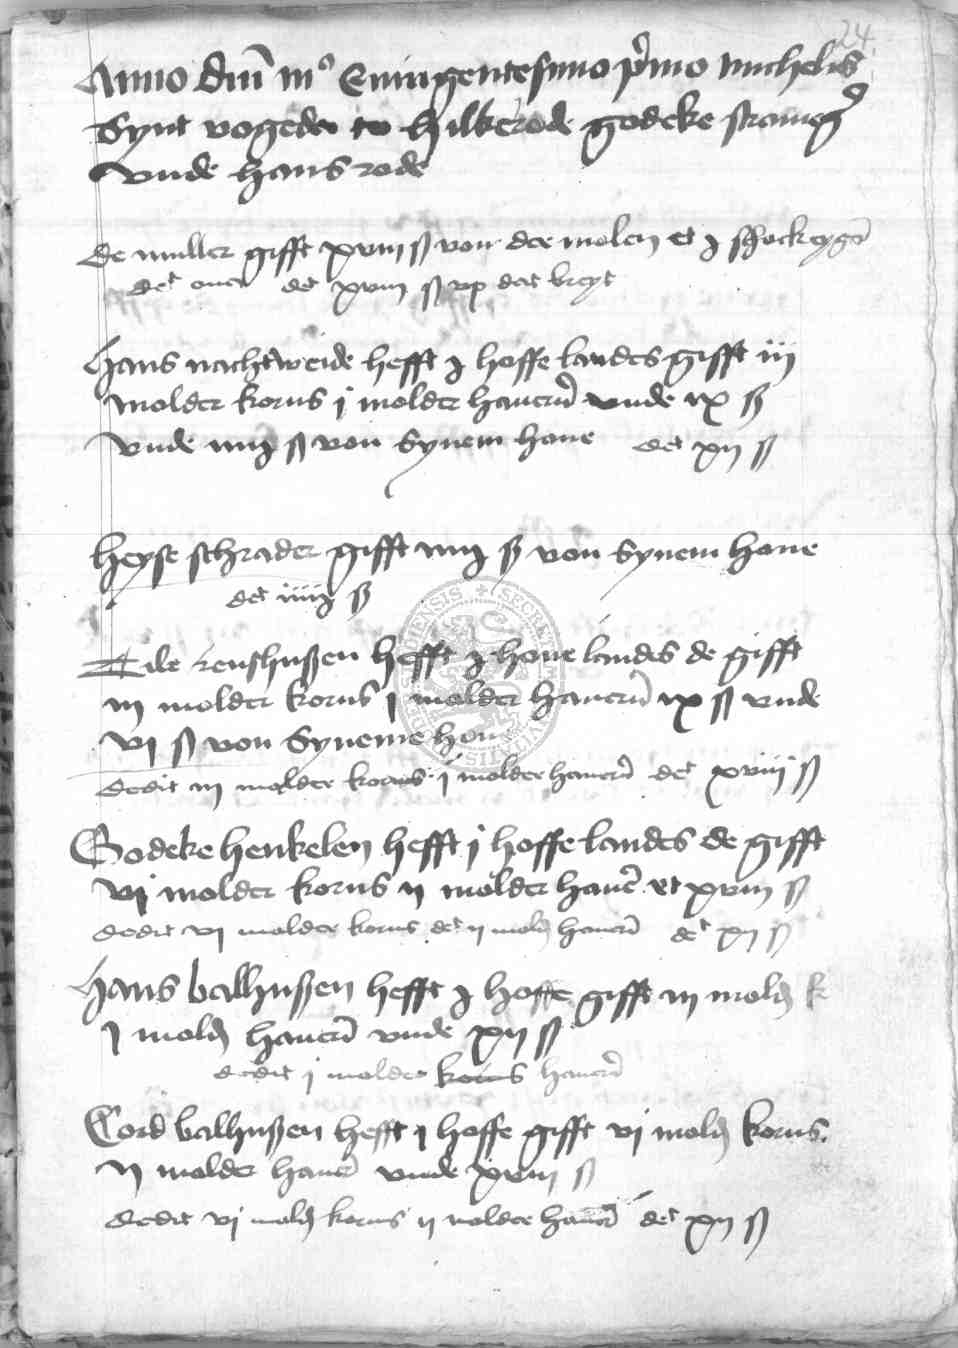 24.
Anno dm̄ mº Quingentesimo p̄mo michelis
Synt vogede to hilkerode godeke
vnde hans rode
de muller gifft xviii ß von der molen et j schockeyger
det det xviii ß vp dat
hans nachtweide hefft j hoffe landes gifft iij
molder korns j molder hauern̄ vnde ix ß
vnde iiij ß von Synem houe det xij ß
heyse schrader gifft iiij ß von Synem houe
det iiij ß
Tile renshußen hefft j houe landes de gifft
iij molder korns j molder hauern̄ ix ß vnde
vj ß von Syneme houe
dedit iij molder korns j molder hauern̄ det xviij ß
Godeke henkelen hefft j hoffe landes de gifft
vj molder korns ij molder hauer̄ et xviii ß
dedit vj molder korns det ij mold hauern̄ det xij ß
hans balhußen hefft j hoffe gifft iij mold k
j mold hauern̄ vnde xij ß
dedit j molder korns hauern̄
Cord balhußen hefft j hoffe gifft vj mold korns
ij molder hauer̄ vnde xviii ß
dedit vj mold korns ij molder hauern̄ det xij ß